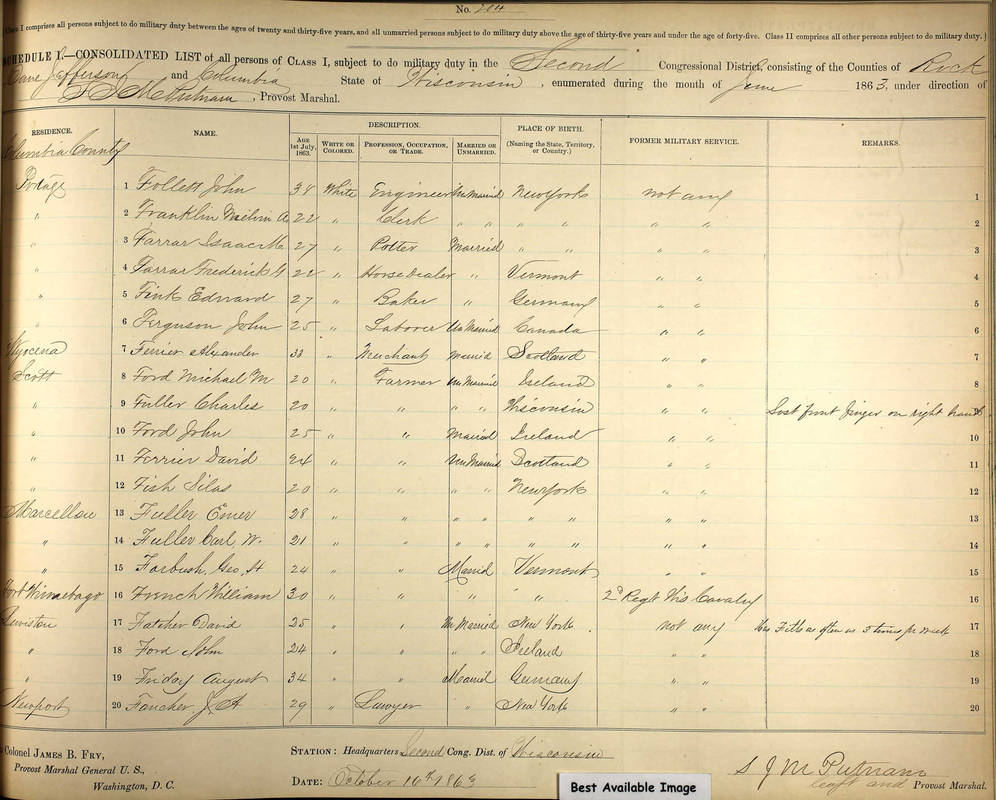 No. 204
Class I comprises all persons subject to do military duty between the ages of twenty and thirty-five years, and all unmarried persons subject to do military duty above the age of thirty-five years and under the age of forty-five. Class II comprises all other persons subject to do military duty.]
SCHEDULE I.—CONSOLIDATED LIST of all persons of CLASS I, subject to do military duty in the Second Congressional District, consisting of the Counties of Rock
Dane Jefferson and Columbia State of Wisconsin, enumerated during the month of June 1863, under direction of
S J M Putnam, Provost Marshal.
RESIDENCE. NAME. DESCRIPTION. PLACE OF BIRTH. (Naming the State, Territory, or Country.) FORMER MILITARY SERVICE. REMARKS.
AGE 1st July, 1863. WHITE OR COLORED. PROFESSION, OCCUPATION, OR TRADE. MARRIED OR UNMARRIED.
Columbia County
Portage 1 Follett John 38 White Engineer UnMarried New York not any 1
" 2 Franklin Melvin A 22 " Clerk " " " " " " 2
" 3 Farrar Isaac M 27 " Potter Married " " " " 3
" 4 Farrar Frederick G 22 " Horse Dealer " Vermont " " 4
" 5 Fink Edward 27 " Baker " Germany " " 5
" 6 Ferguson John 25 " Laborer UnMarried Canada " " 6
Wyocena 7 Ferrier Alexander 33 " Merchant Married Scotland " " 7
Scott 8 Ford Michael M 20 " Farmer UnMarried Ireland " " 8
" 9 Fuller Charles 20 " " " " Wisconsin " " Lost front finger on right hand 9
" 10 Ford John 25 " " Married Ireland " " 10
" 11 Ferrier David 24 " " UnMarried Scotland " " 11
" 12 Fish Silas 20 " " " " New York " " 12
Marcellon 13 Fuller Emer 28 " " " " " " " " 13
" 14 Fuller Carl W. 21 " " " " " " " " 14
" 15 Forbush, Geo. H 24 " " Married Vermont " " 15
Fort Winnebago 16 French William 30 " " " " " 2d Regt Wis Cavalry 16
Lewiston 17 Fatcher David 25 " " UnMarried New York not any Has Fitts as often as 5 times per week 17
" 18 Ford John 24 " " " " Ireland " " 18
" 19 Friday August 34 " " Married Germany " " 19
Newport 20 Fancher, J. A 29 " Lawyer " New York " " 20
Colonel JAMES B. FRY,
Provost Marshal General U. S.,
Washington, D. C.
STATION: Headquarters Second Cong. Dist. of Wisconsin
DATE: October 16th 1863
S J M Putnam
Capt and Provost Marshal.
Best Available Image